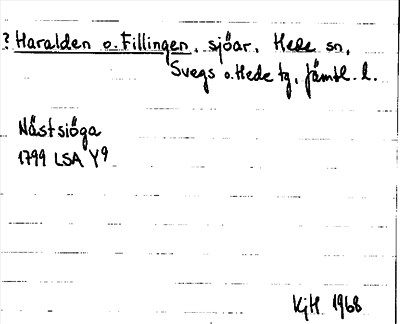 ? Haralden o. Fillingen, sjöar, Hede sn,
Svegs o. Hede tg, Jämtl. l.
Nästsiöga
1799 LSA Y9
KjH 1968